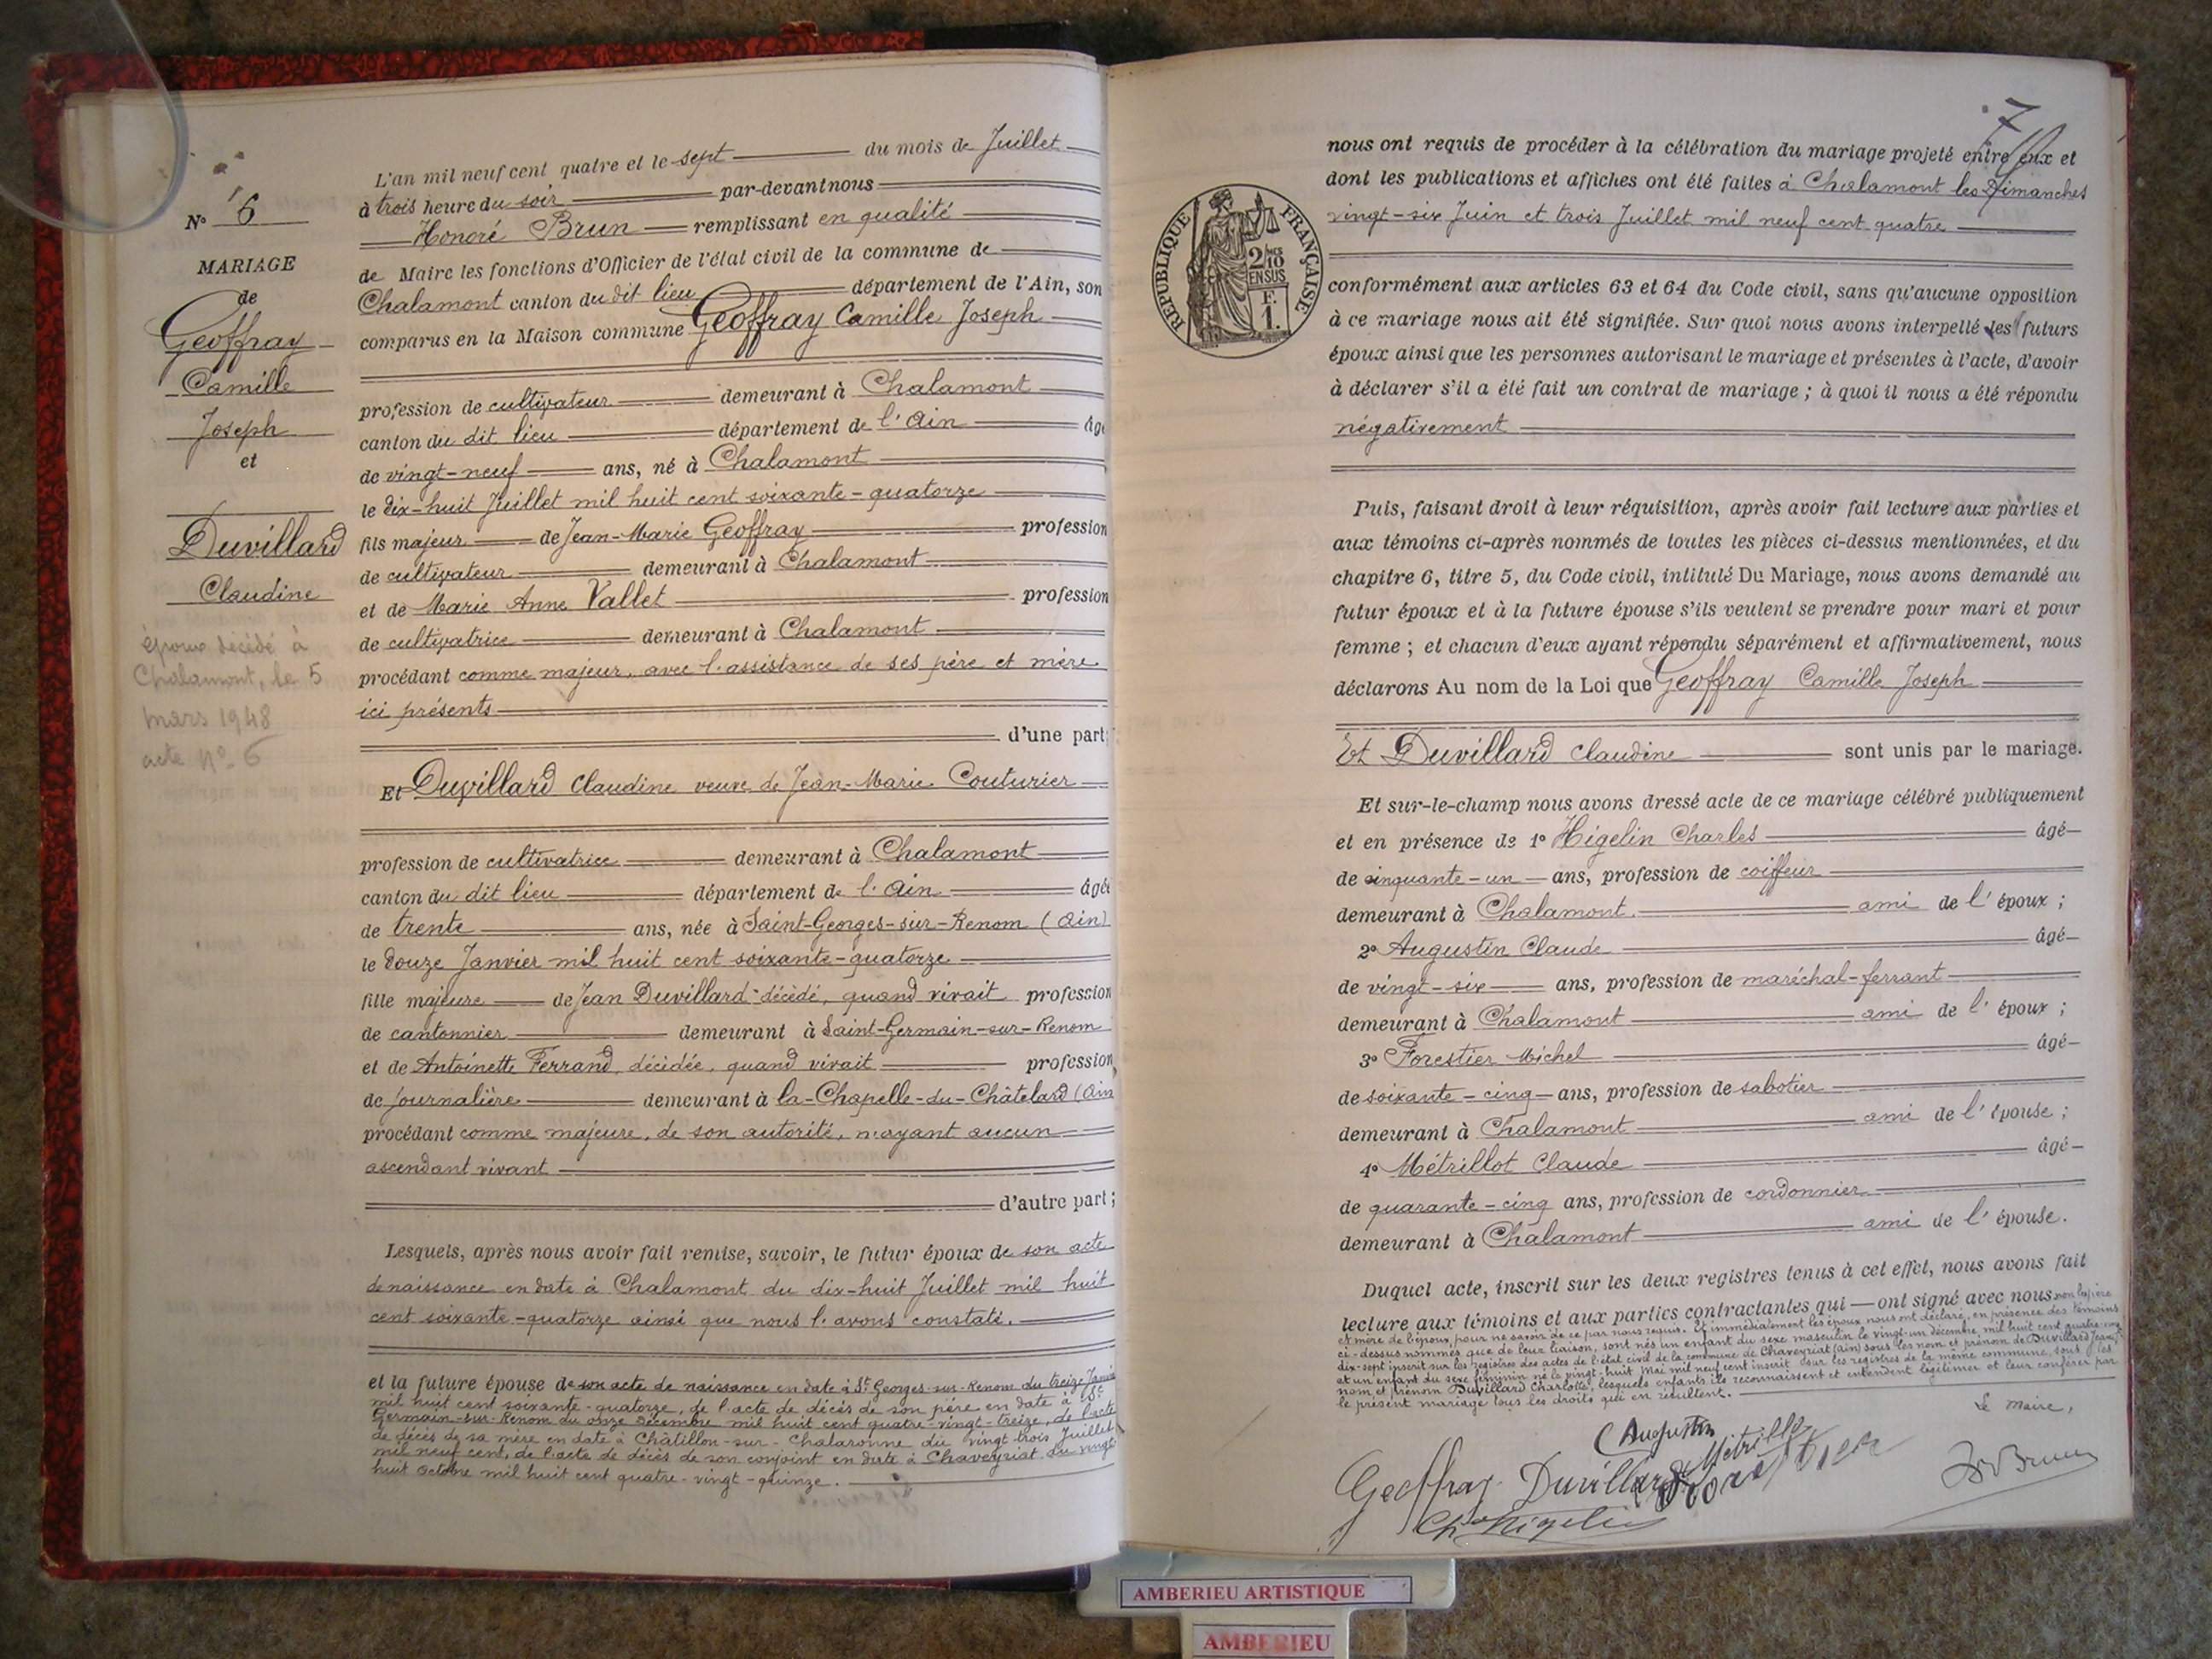 N° 6
MARIAGE
de
Geoffray
Camille
Joseph
et
Duvillard
Claudine
époux décédé à
Chalamont, le 5
mars 1948
acte n° 6
L'an mil neuf cent quatre et le sept du mois de Juillet
à trois heure du soir par-devant nous
Honoré Brun remplissant en qualité
de Maire les fonctions d'Officier de l'état civil de la commune de
Chalamont canton du dit lieu département de l'Ain, son
comparus en la Maison commune Geoffray Camille Joseph
profession de cultivateur demeurant à Chalamont
canton du dit lieu département de l'Ain âgé
de vingt-neuf ans, né à Chalamont
le dix-huit Juillet mil huit cent soixante-quatorze
fils majeur de Jean-Marie Geoffray profession
de cultivateur demeurant à Chalamont
et de Marie Anne Vallet profession
de cultivatrice demeurant à Chalamont
procédant comme majeur, avec l'assistance de ses père et mère
ici présents
d'une part;
Et Duvillard Claudine veuve de Jean-Marie Couturier
profession de cultivatrice demeurant à Chalamont
canton du dit lieu département de l'Ain âgée
de trente ans, née à Saint-Georges-sur-Renom (Ain)
le douze Janvier mil huit cent soixante-quatorze
fille majeure de Jean Duvillard décédé, quand vivait profession
de cantonnier demeurant à Saint-Germain-sur-Renom
et de Antoinette Ferrand, décédée, quand vivait profession
de journalière demeurant à la-Chapelle-du-Châtelard (Ain
procédant comme majeure, de son autorité, n'ayant aucun
ascendant vivant
d'autre part;
Lesquels, après nous avoir fait remise, savoir, le futur époux de son acte
de naissance en date à Chalamont du dix-huit Juillet mil huit
cent soixante-quatorze ainsi que nous l'avons constaté.
et la future épouse de son acte de naissance en date à St Georges-sur-Renom du treize Janvier
mil huit cent soixante-quatorze, de l'acte de décès de son père en date à St
Germain-sur-Renom du onze Décembre mil huit cent quatre-vingt-treize, de l'acte
de décès de sa mère en date à Châtillon-sur-Chalaronne du vingt-trois Juillet
mil neuf cent, de l'acte de décès de son conjoint en date à Chaveyriat du vingt-
huit octobre mil huit cent quatre-vingt-quinze.
7
RÉPUBLIQUE FRANÇAISE
2/10
EN SUS
F.
1.
nous ont requis de procéder à la célébration du mariage projeté entre eux et
dont les publications et affiches ont été faites à Chalamont les Dimanches
vingt-six Juin et trois Juillet mil neuf cent quatre
conformément aux articles 63 et 64 du Code civil, sans qu'aucune opposition
à ce mariage nous ait été signifiée. Sur quoi nous avons interpellé les futurs
époux ainsi que les personnes autorisant le mariage et présentes à l'acte, d'avoir
à déclarer s'il a été fait un contrat de mariage; à quoi il nous a été répondu
négativement
Puis, faisant droit à leur réquisition, après avoir fait lecture aux parties et
aux témoins ci-après nommés de toutes les pièces ci-dessus mentionnées, et du
chapitre 6, titre 5, du Code civil, intitulé Du Mariage, nous avons demandé au
futur époux et à la future épouse s'ils veulent se prendre pour mari et pour
femme; et chacun d'eux ayant répondu séparément et affirmativement, nous
déclarons Au nom de la Loi que Geoffray Camille Joseph
Et Duvillard Claudine sont unis par le mariage.
Et sur-le-champ nous avons dressé acte de ce mariage célébré publiquement
et en présence de 1° Higelin Charles âgé
de cinquante-un ans, profession de coiffeur
demeurant à Chalamont. ami de l'époux;
2° Augustin Claude âgé
de vingt-six ans, profession de maréchal-ferrant
demeurant à Chalamont ami de l'époux;
3° Forestier Michel âgé
de soixante-cinq ans, profession de sabotier
demeurant à Chalamont ami de l'épouse;
4° Métrillot Claude âgé
de quarante-cinq ans, profession de cordonnier
demeurant à Chalamont ami de l'épouse.
Duquel acte, inscrit sur les deux registres tenus à cet effet, nous avons fait
lecture aux témoins et aux parties contractantes qui ont signé avec nous non les père
et mère de l'époux, pour ne savoir de ce par nous requis. Et immédiatement les époux nous ont déclaré, en présence des témoins
ci-dessus nommés que de leur liaison, sont nés un enfant du sexe masculin le vingt-un décembre mil huit cent quatre-vingt
dix-sept inscrit sur les registres des actes de l'état civil de la commune de Chaveyriat (Ain) sous les nom et prénom de Duvillard Jean,
et un enfant du sexe féminin né le vingt-huit Mai mil neuf cent inscrit sur les registres de la même commune, sous les
nom et prénom Duvillard Charlotte, lesquels enfants ils reconnaissent et entendent légitimer et leur conférer par
le présent mariage tous les droits qui en résultent.
Le maire,
C Augustin
Métrillot
Geoffray Duvillard Forestier
Ch Higelin
H Brun
AMBERIEU ARTISTIQUE
AMBERIEU